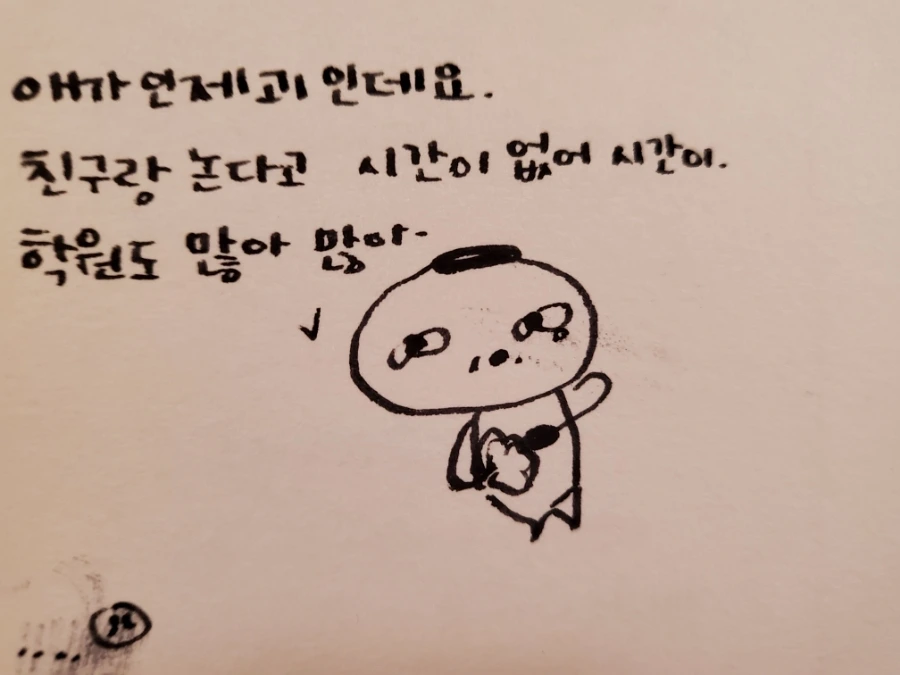 애가 언제괴 인데요.
친구랑 논다고 시간이 없어 시간이.
학원도 많아 많아.
....